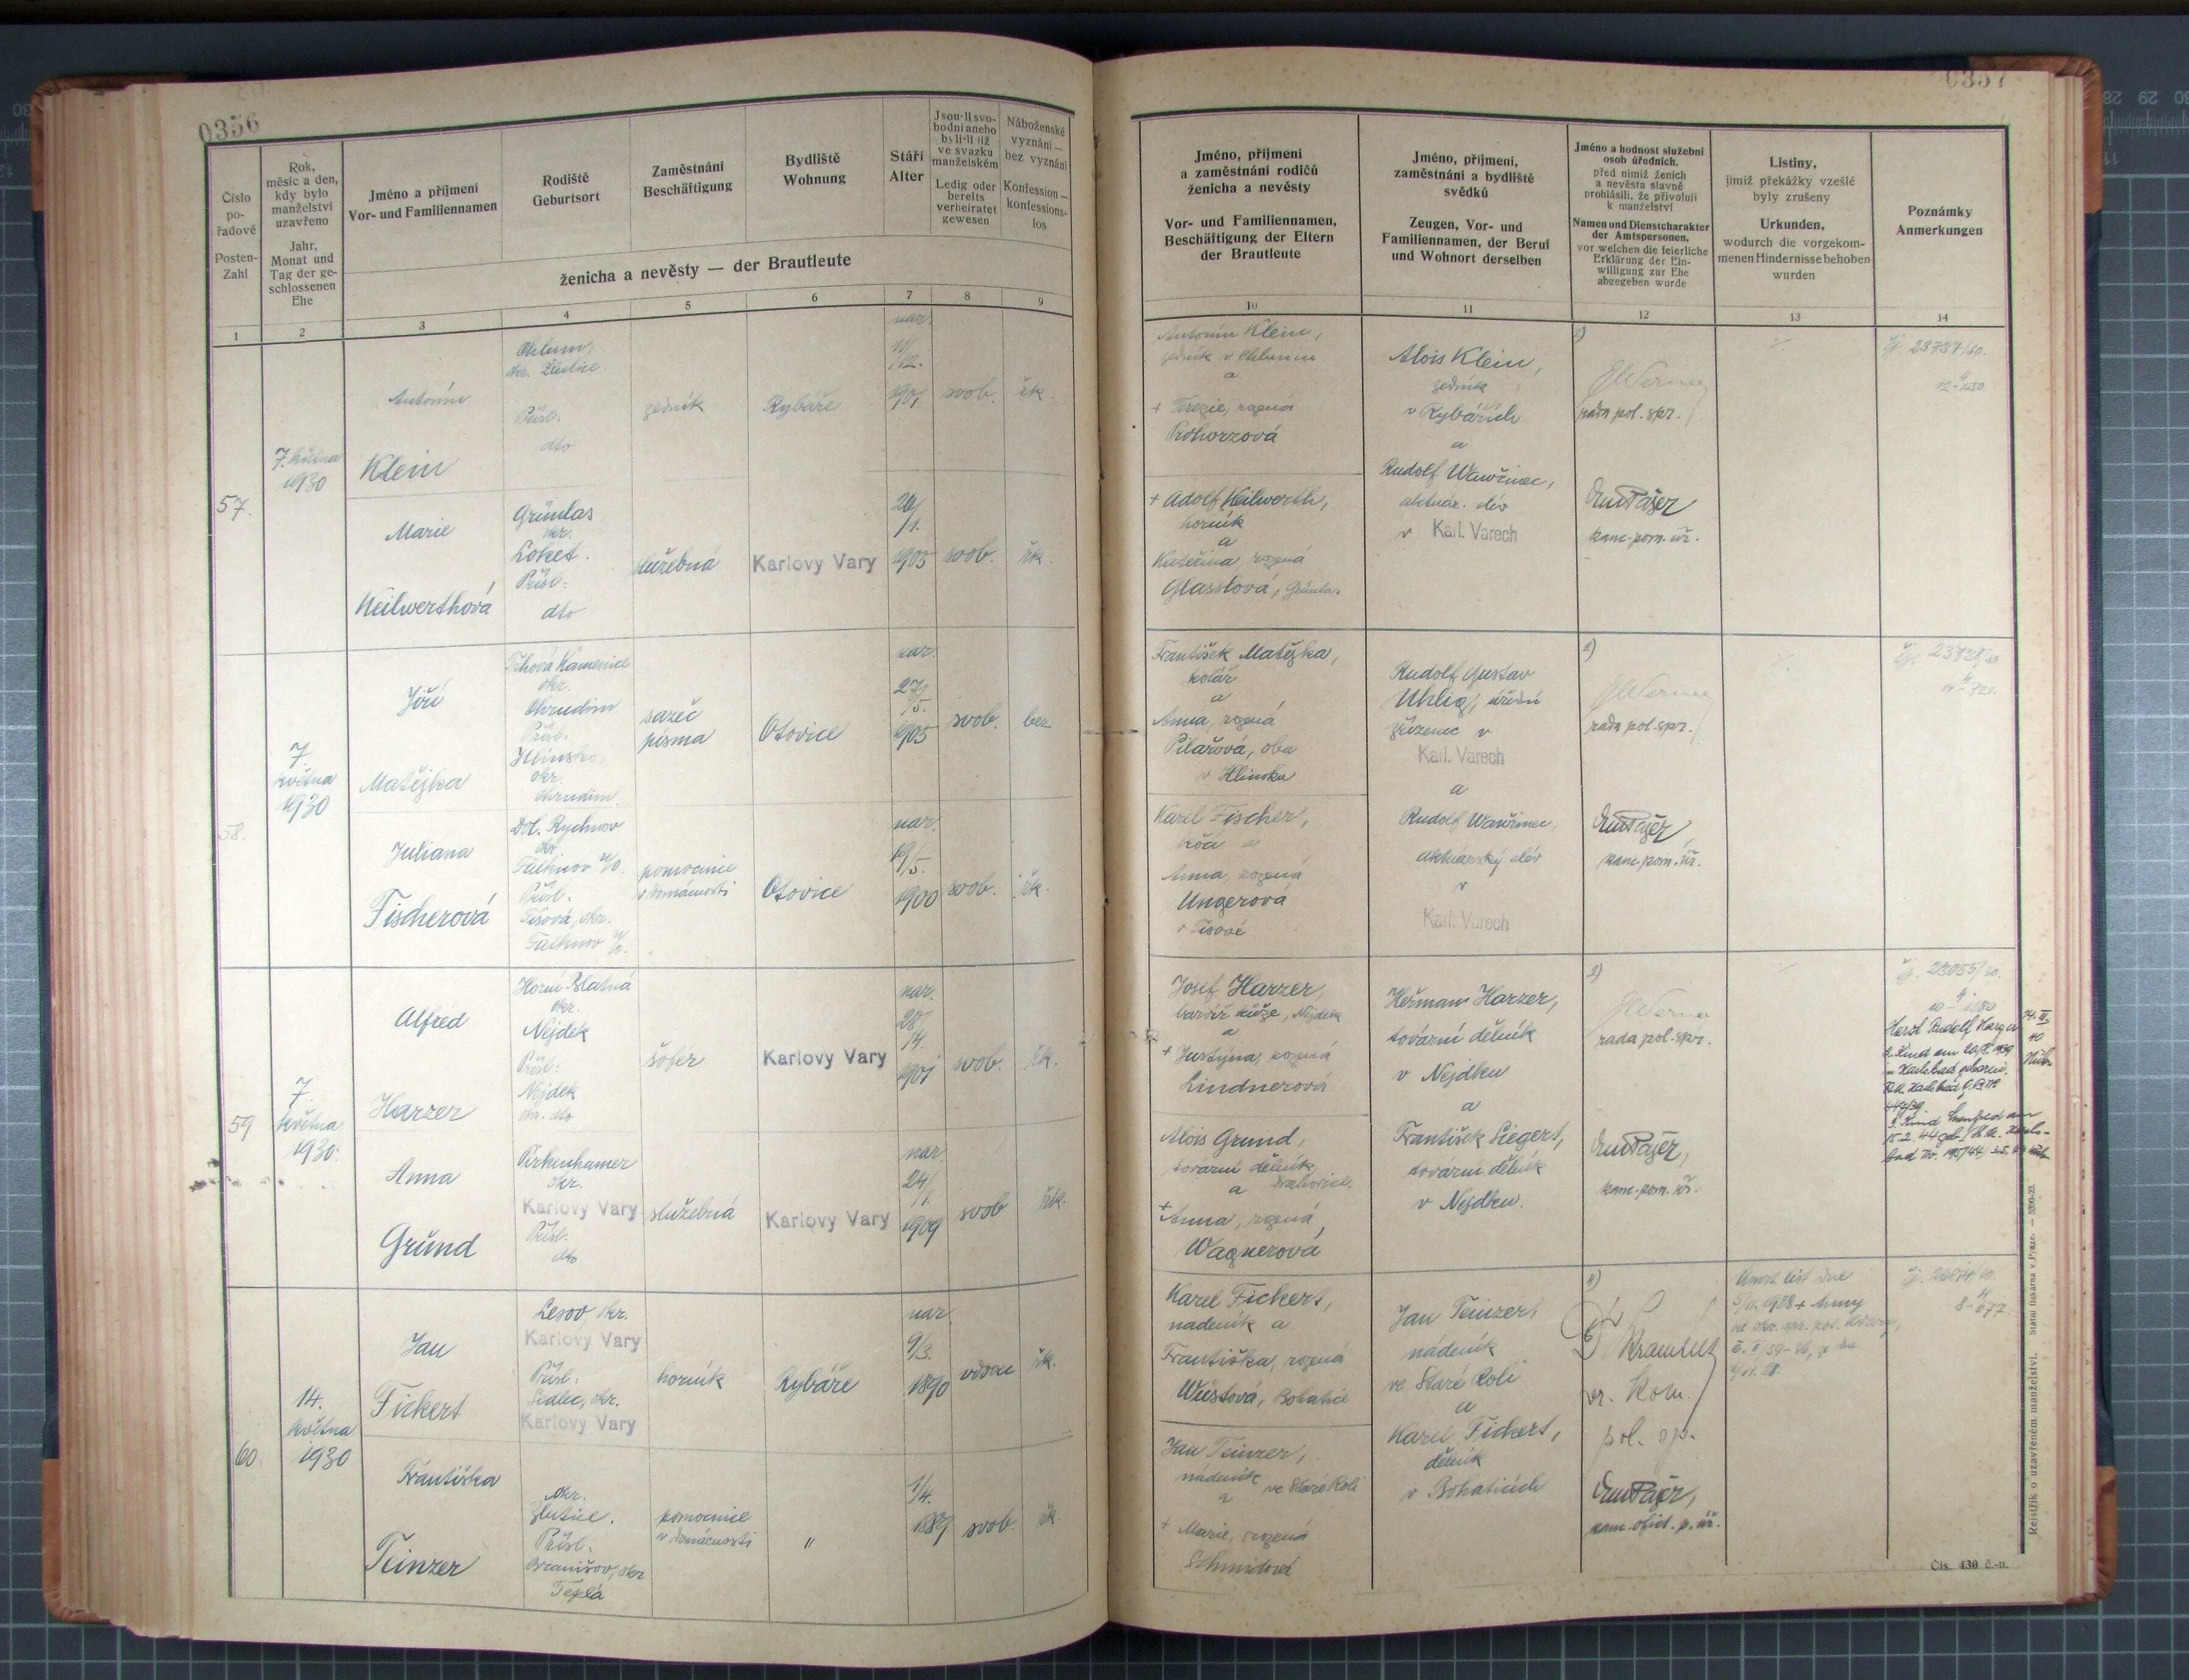 0356
Číslo
po-
řadové
Posten-
Zahl
Rok,
měsíc a den,
kdy bylo
manželství
uzavřeno
Jahr,
Monat und
Tag der ge-
schlossenen
Ehe
Jméno a příjmení
Vor- und Familiennamen
Rodiště
Geburtsort
Zaměstnání
Beschäftigung
Bydliště
Wohnung
Stáří
Alter
Jsou-li svo-
bodni anebo
byli-li již
ve svazku
manželském
Ledig oder
bereits
verheiratet
gewesen
Náboženské
vyznání —
bez vyznání
Konfession —
konfessions-
los
ženicha a nevěsty — der Brautleute
1
2
3
4
5
6
7
8
9
57.
7. května
1930
Antonín
Klein
Chlum,
okr. Žlutice
Přísl.
dto
zedník
Rybáře
nar.
1901
svob.
řk.
Marie
Keilwerthová
Grünlas
okr.
Loket.
Přísl:
dto
služebná
Karlovy Vary
1905
svob.
řk.
58.
7.
května
1930
Jiří
Matějka
Trhová Kamenice
okr.
Chrudim
Přísl.
Hlinsko,
okr.
Chrudim
sazeč
písma
Otovice
nar.
27/
/5.
1905
svob.
bez
Juliana
Fischerová
Dol. Rychnov
okr.
Falknov n/O.
Přísl.
Tisová, okr.
Falknov n/O.
pomocnice
v domácnosti
Otovice
nar.
19/5.
1900
svob.
řk.
59
7.
května
1930.
Alfréd
Harzer
Horní Blatná
okr.
Nejdek
Přísl:
Nejdek
okr. dto
šofér
Karlovy Vary
nar.
28/
/4.
1901
svob.
řk.
Anna
Gründ
Pirkenhamer
okr.
Karlovy Vary
Přísl.
dto
služebná
Karlovy Vary
nar.
24/
/1.
1909
svob
řk.
60.
14.
května
1930
Jan
Fickert
Lesov, okr.
Karlovy Vary
Přísl.
Sedlec, okr.
Karlovy Vary
horník
Rybáře
nar.
9/3.
1890
vdovec
řk.
Františka
Teinzer
okr.
Žlutice.
Přísl.
Branišov, okr
Teplá
pomocnice
v domácnosti
"
1/4.
1889
svob.
řk.
0357
Jméno, příjmení
a zaměstnání rodičů
ženicha a nevěsty
Vor- und Familiennamen,
Beschäftigung der Eltern
der Brautleute
Jméno, příjmení,
zaměstnání a bydliště
svědků
Zeugen, Vor- und
Familiennamen, der Beruf
und Wohnort derselben
Jméno a hodnost služební
osob úředních,
před nimiž ženich
a nevěsta slavně
prohlásili, že přivolují
k manželství
Namen und Dienstcharakter
der Amtspersonen,
vor welchen die feierliche
Erklärung der Ein-
willigung zur Ehe
abgegeben wurde
Listiny,
jimiž překážky vzešlé
byly zrušeny
Urkunden,
wodurch die vorgekom-
menen Hindernisse behoben
wurden
Poznámky
Anmerkungen
10
11
12
13
14
Antonín Klein,
zedník v Chlumu
a
+ Terezie, rozená
Prohorzová
Alois Klein,
zedník
v Rybářích
a
Rudolf Wawřinec,
aktuár. elév
v Karl. Varech
1)
rada pol. spr.
kanc. pom. úř.
čj. 23737/30.
+ Adolf Keilwerth,
horník
a
Kateřina, rozená
Glasslová, Grünlas
František Matějka,
kolář
a
Anna, rozená
Pilařová, oba
v Hlinsku
Rudolf Gustav
Uhlig, úřední
zřízenec v
Karl. Varech
a
Rudolf Wawřinec,
aktuárský elév
v
Karl. Varech
2)
rada pol. spr.
kanc. pom. úř.
Karel Fischer,
kočí a
Anna, rozená
Ungerová
v Tisové
Josef Harzer,
barvíř kůže, Nejdek
a
+ Justýna, rozená
Lindnerová
Heřman Harzer,
tovární dělník
v Nejdku
a
František Siegert,
tovární dělník
v Nejdku.
3)
rada pol. spr.
kanc. pom. úř.
Horst Rudolf Harzer
Alois Grund,
tovární dělník,
a
+ Anna, rozená,
Wagnerová
Karel Fickert,
nádeník a
Františka, rozená
Wüstová, Bohatice
Jan Teinzer,
nádeník
ve Staré Roli
a
Karel Fickert,
dělník
v Bohaticích
4)
vr. kom.
pol. sp.
Úmrt. list dne
Jan Teinzer,
nádeník ve Staré Roli
a
+ Marie, rozená
Schmidová
Rejstřík o uzavřeném manželství. Státní tiskárna v Praze. — 5390-23.
Čís. 430 č.-n.